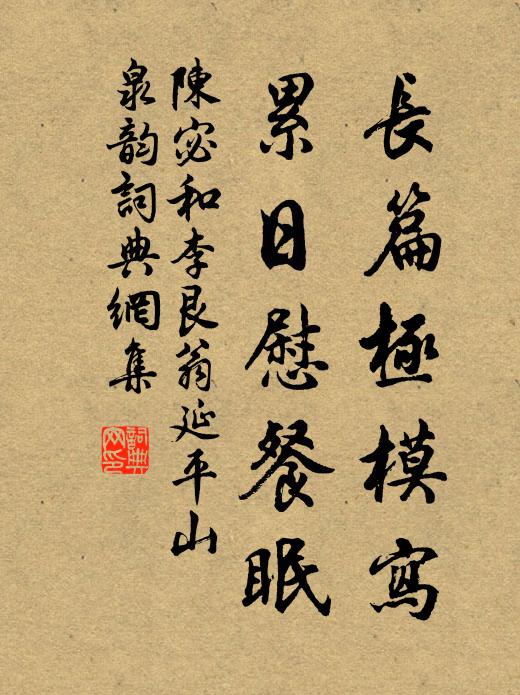 長篇極模寫
累日慰餐眠
陳宓和李艮翁延平山
泉韵詞典網集
詞典網印